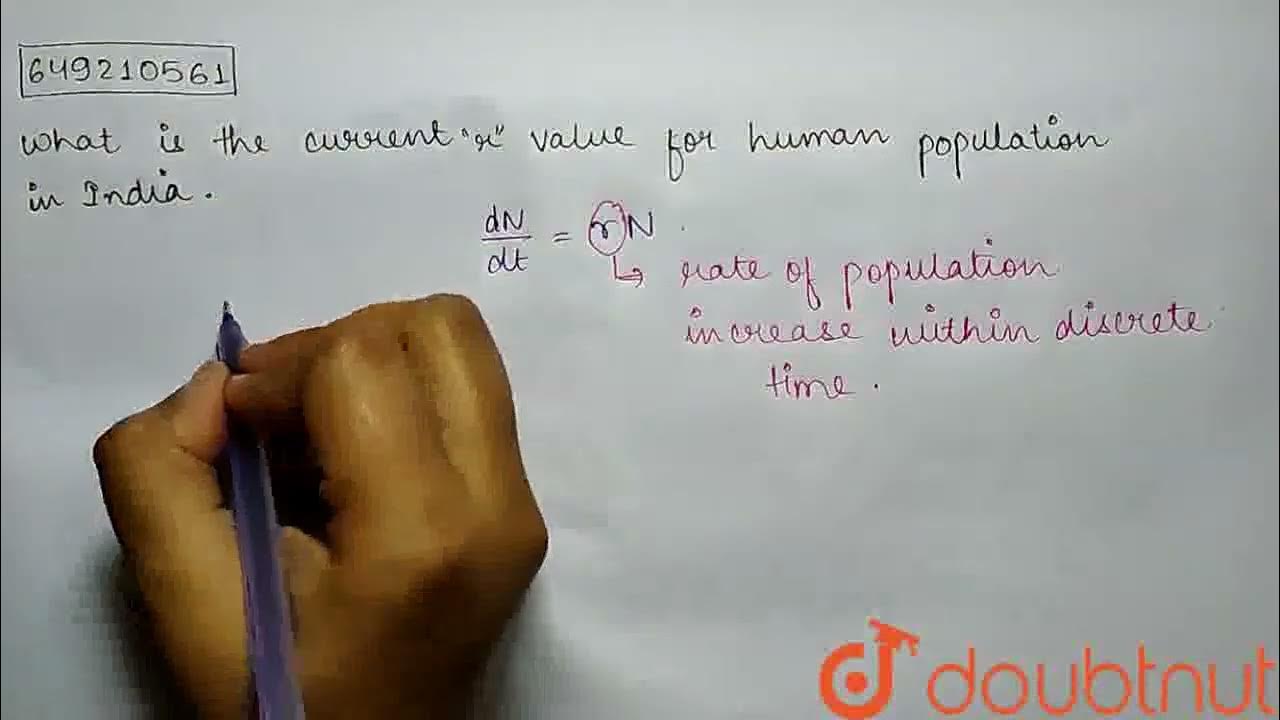 649210561
What is the current "r" value for human population
in India.
dN/dt = rN
↳ rate of population
increase within discrete
time.
doubtnut